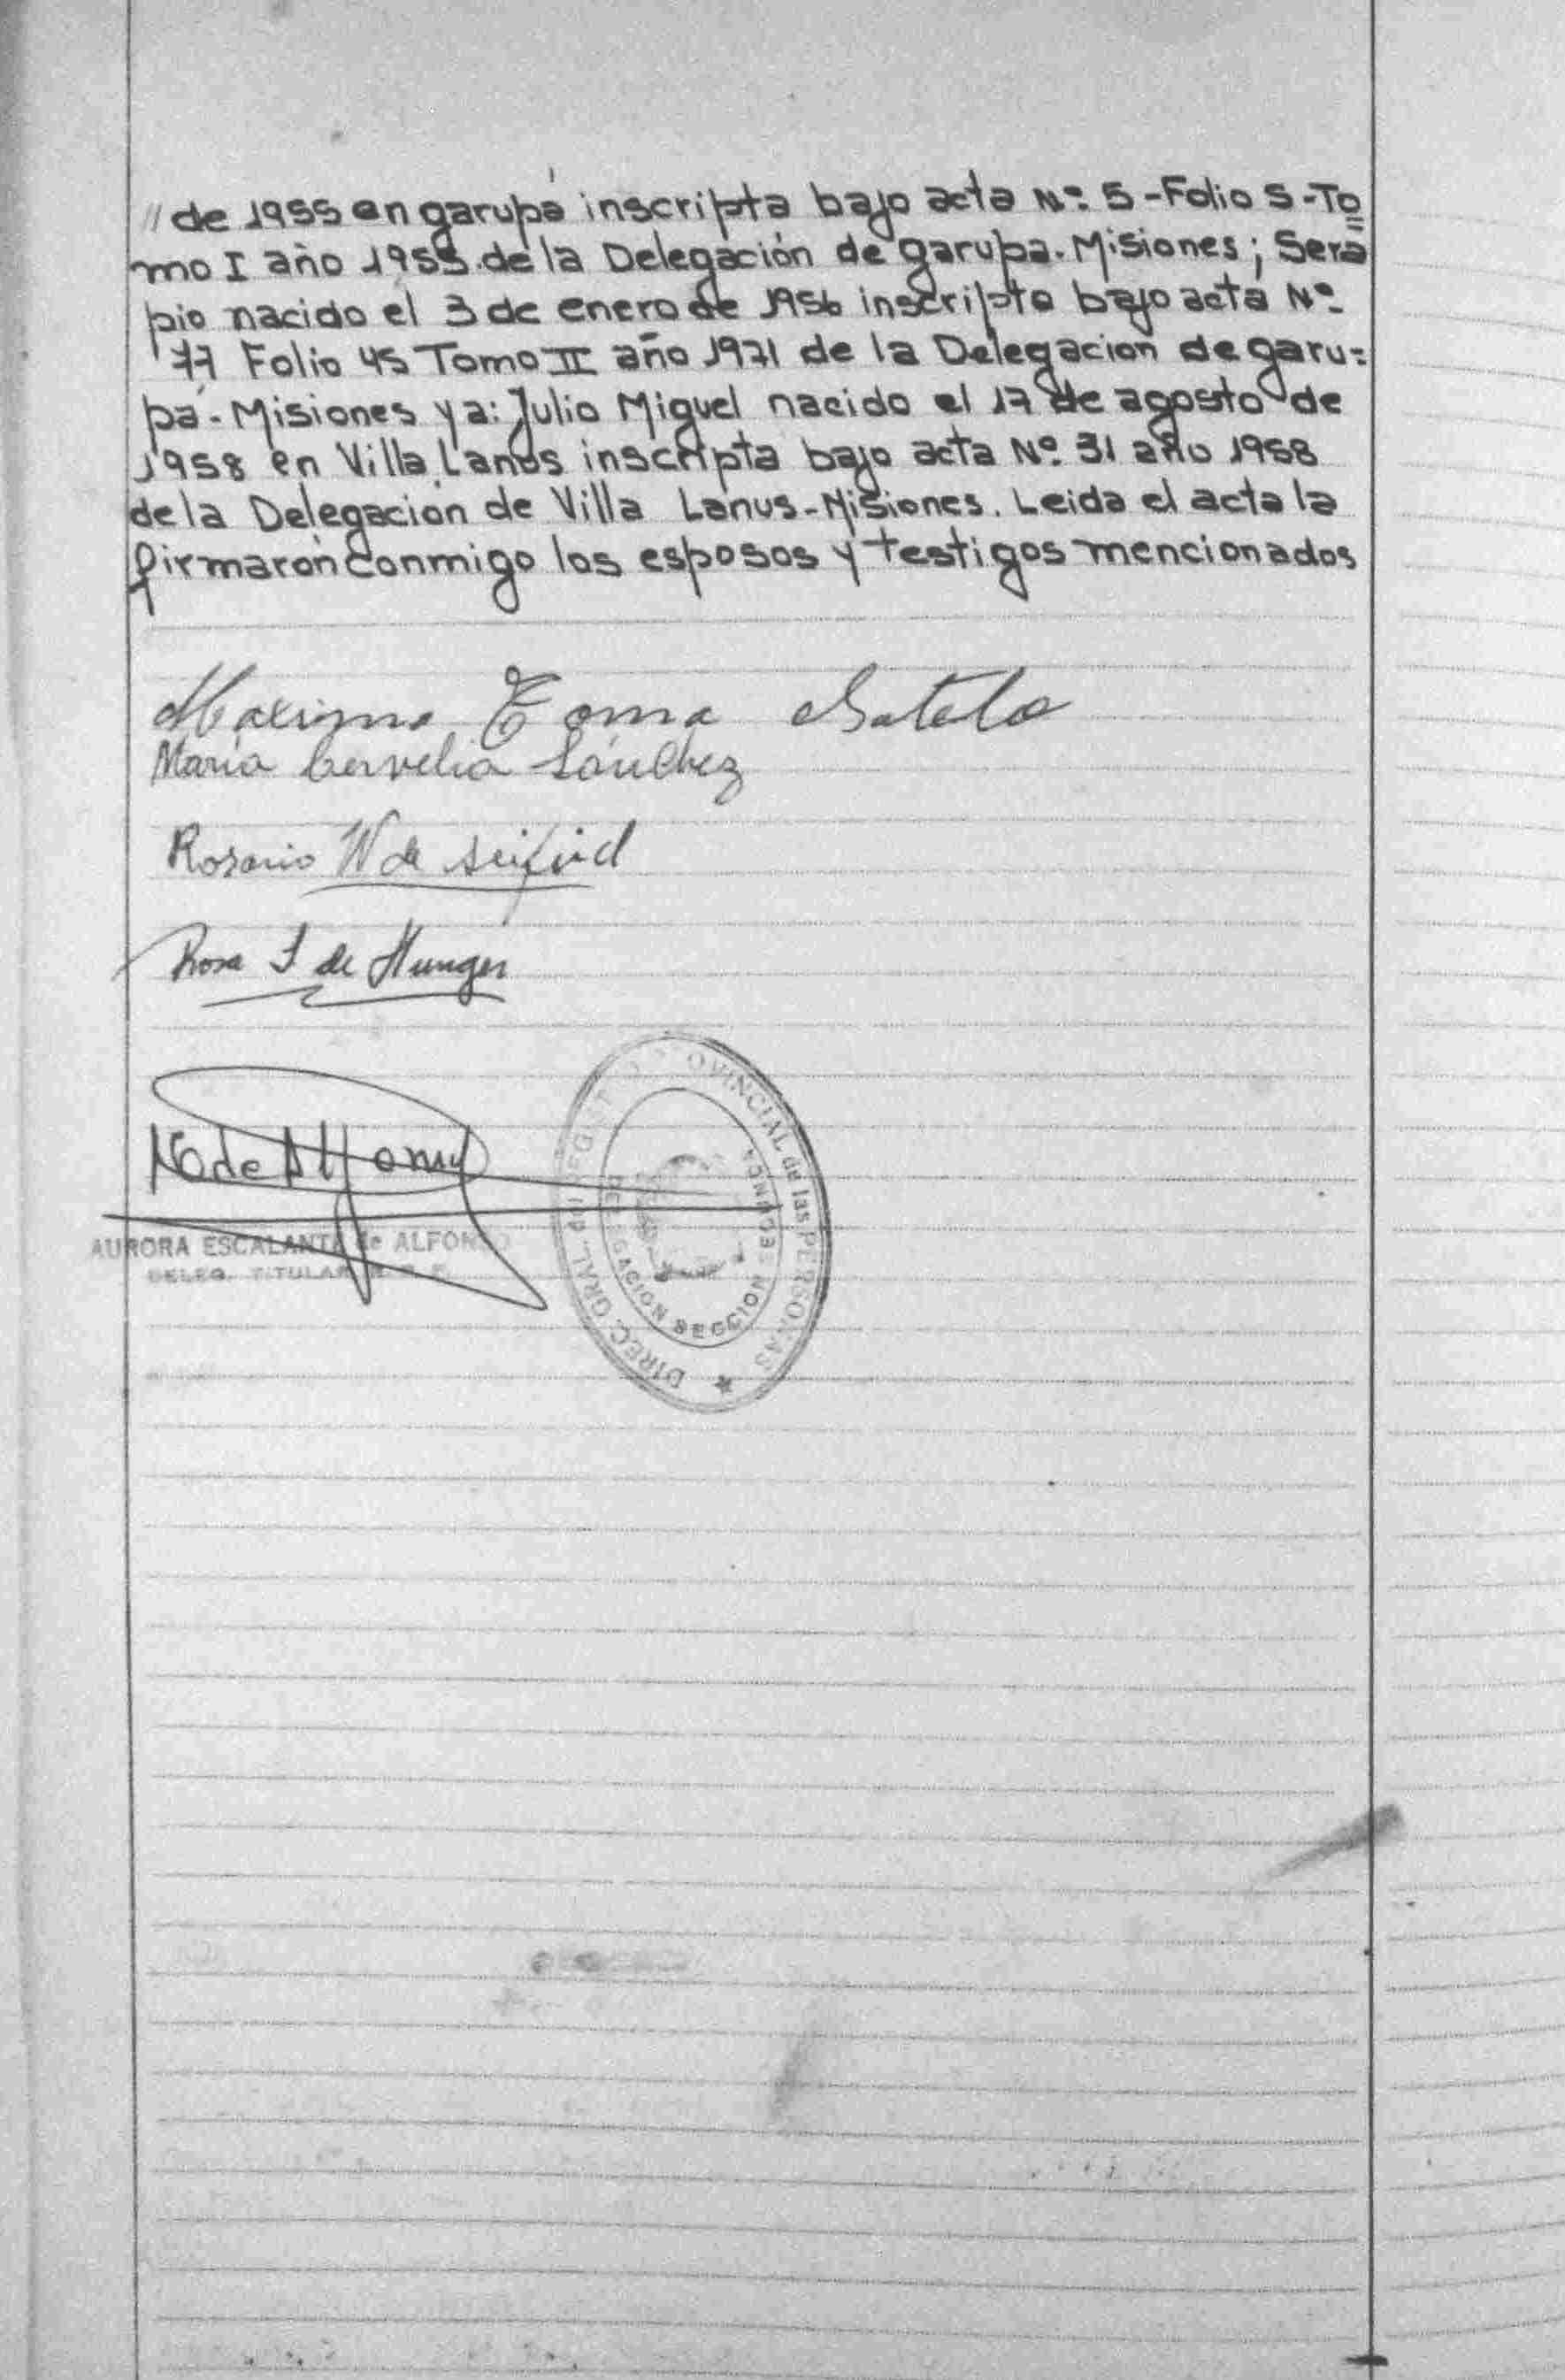 // de 1955 en garupá inscripta bajo acta Nº 5 - Folio 5 - To=
mo I año 1955 de la Delegación de garupa. Misiones; Sera
pio nacido el 3 de enero de 1956 inscripto bajo acta Nº
77 Folio 45 Tomo II año 1971 de la Delegacion de garu=
pá - Misiones y a: Julio Miguel nacido el 17 de agosto de
1958 en Villa Lanus inscripta bajo acta Nº 31 año 1958
de la Delegación de Villa Lanus - Misiones. Leida el acta la
firmaron conmigo los esposos y testigos mencionados
Maximo Toma Sotelo
María Cervelia Sánchez
Rosario W de Seifird
Rosa S de Hunger
de Alfonso
AURORA ESCALANTE de ALFONSO
DELEG. TITULAR
DIREC. GRAL. del REGISTRO PROVINCIAL de las PERSONAS
DELEGACION SECCION SEGUNDA